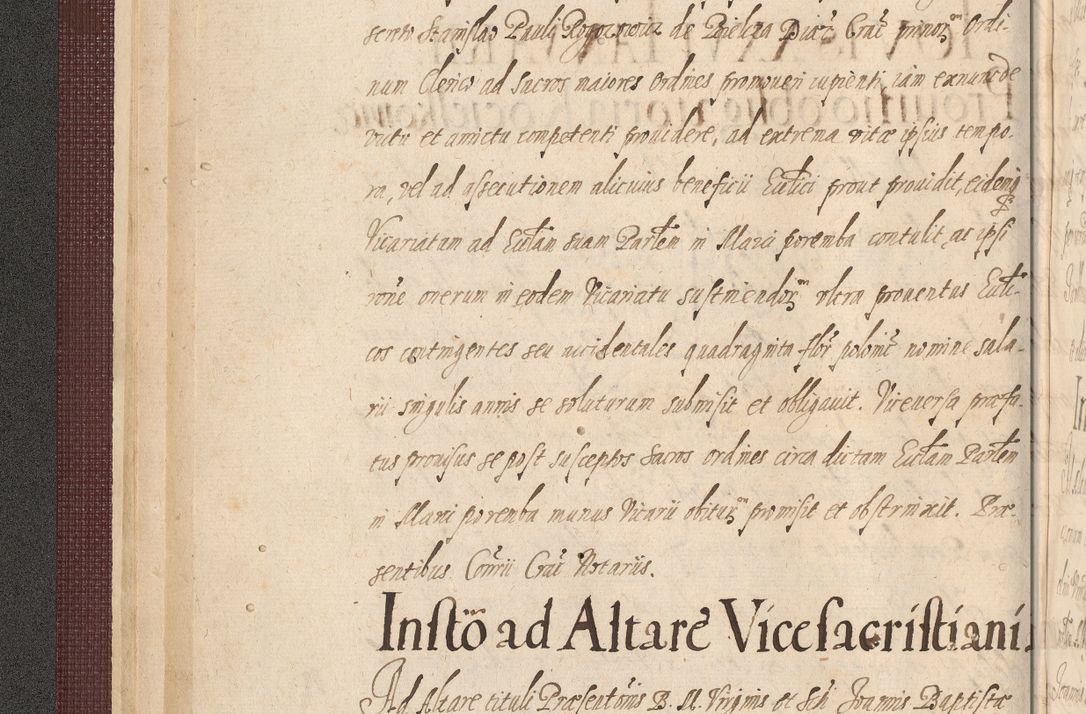 Stanislao Pauli Rogoznicz de Pielcza Diaec. Crac. minorũ Ordi-
num Clerico ad Sacros maiores Ordines promoveri cupienti, iam exnunc de
victu et amictu competenti providere, ad extrema vitæ ipsius tempo-
ra, vel ad assecutionem alicuius beneficii Eccľici prout providit, eidemq́
Vicariatum ad Eccľam suam Parľem in Mlari poremba contulit, ac ipsi
rone onerum in eodem Vicariatu sustinendorũ ultra proventus Eccľi-
cos contingentes seu accidentales quadraginta flor̃ poloniĉ nomine sala-
rii singulis annis se soluturum submisit et obligavit. Viceversa præfa-
tus provisus se post susceptos Sacros Ordines circa dictam Eccľam Parľem
in Mlari poremba munus Vicarii obiturũ promisit et obstrinxit. Præ-
sentibus Conrii Crac̃ Notariis.
Instõ ad Altare Vicesacristiani.
Ad Altare tituli Præsentõnis B. M. Virginis et Sti Joannis Baptistæ